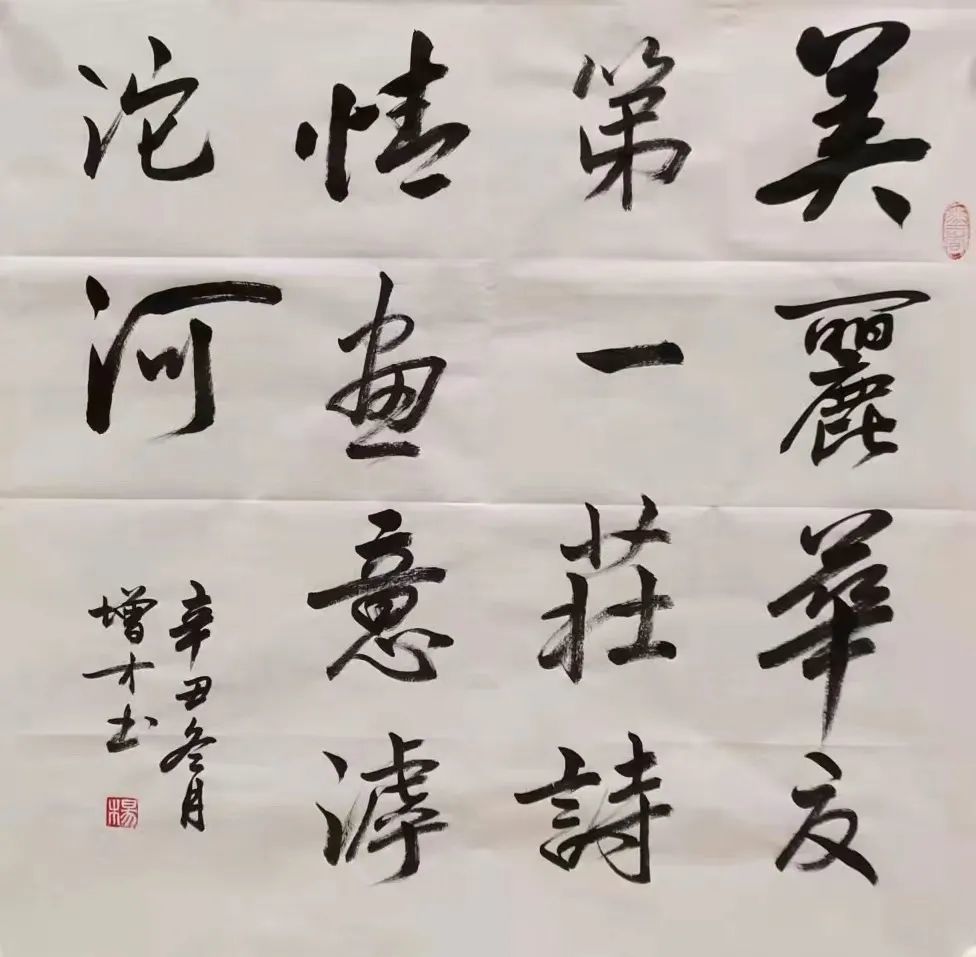 美麗華友
第一莊詩
情畫意滹
沱河
辛丑冬月
增才书
楊